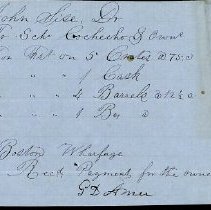 John Sise, Dr
To Sch Cochecho & Own
For Frt on 5 Crates @ 75 c
" " " 1 Cask
" " " 4 Barrels @ 12½ c
" " " 1 Bx @
Boston Wharfage
Rec't Payment, for the owne